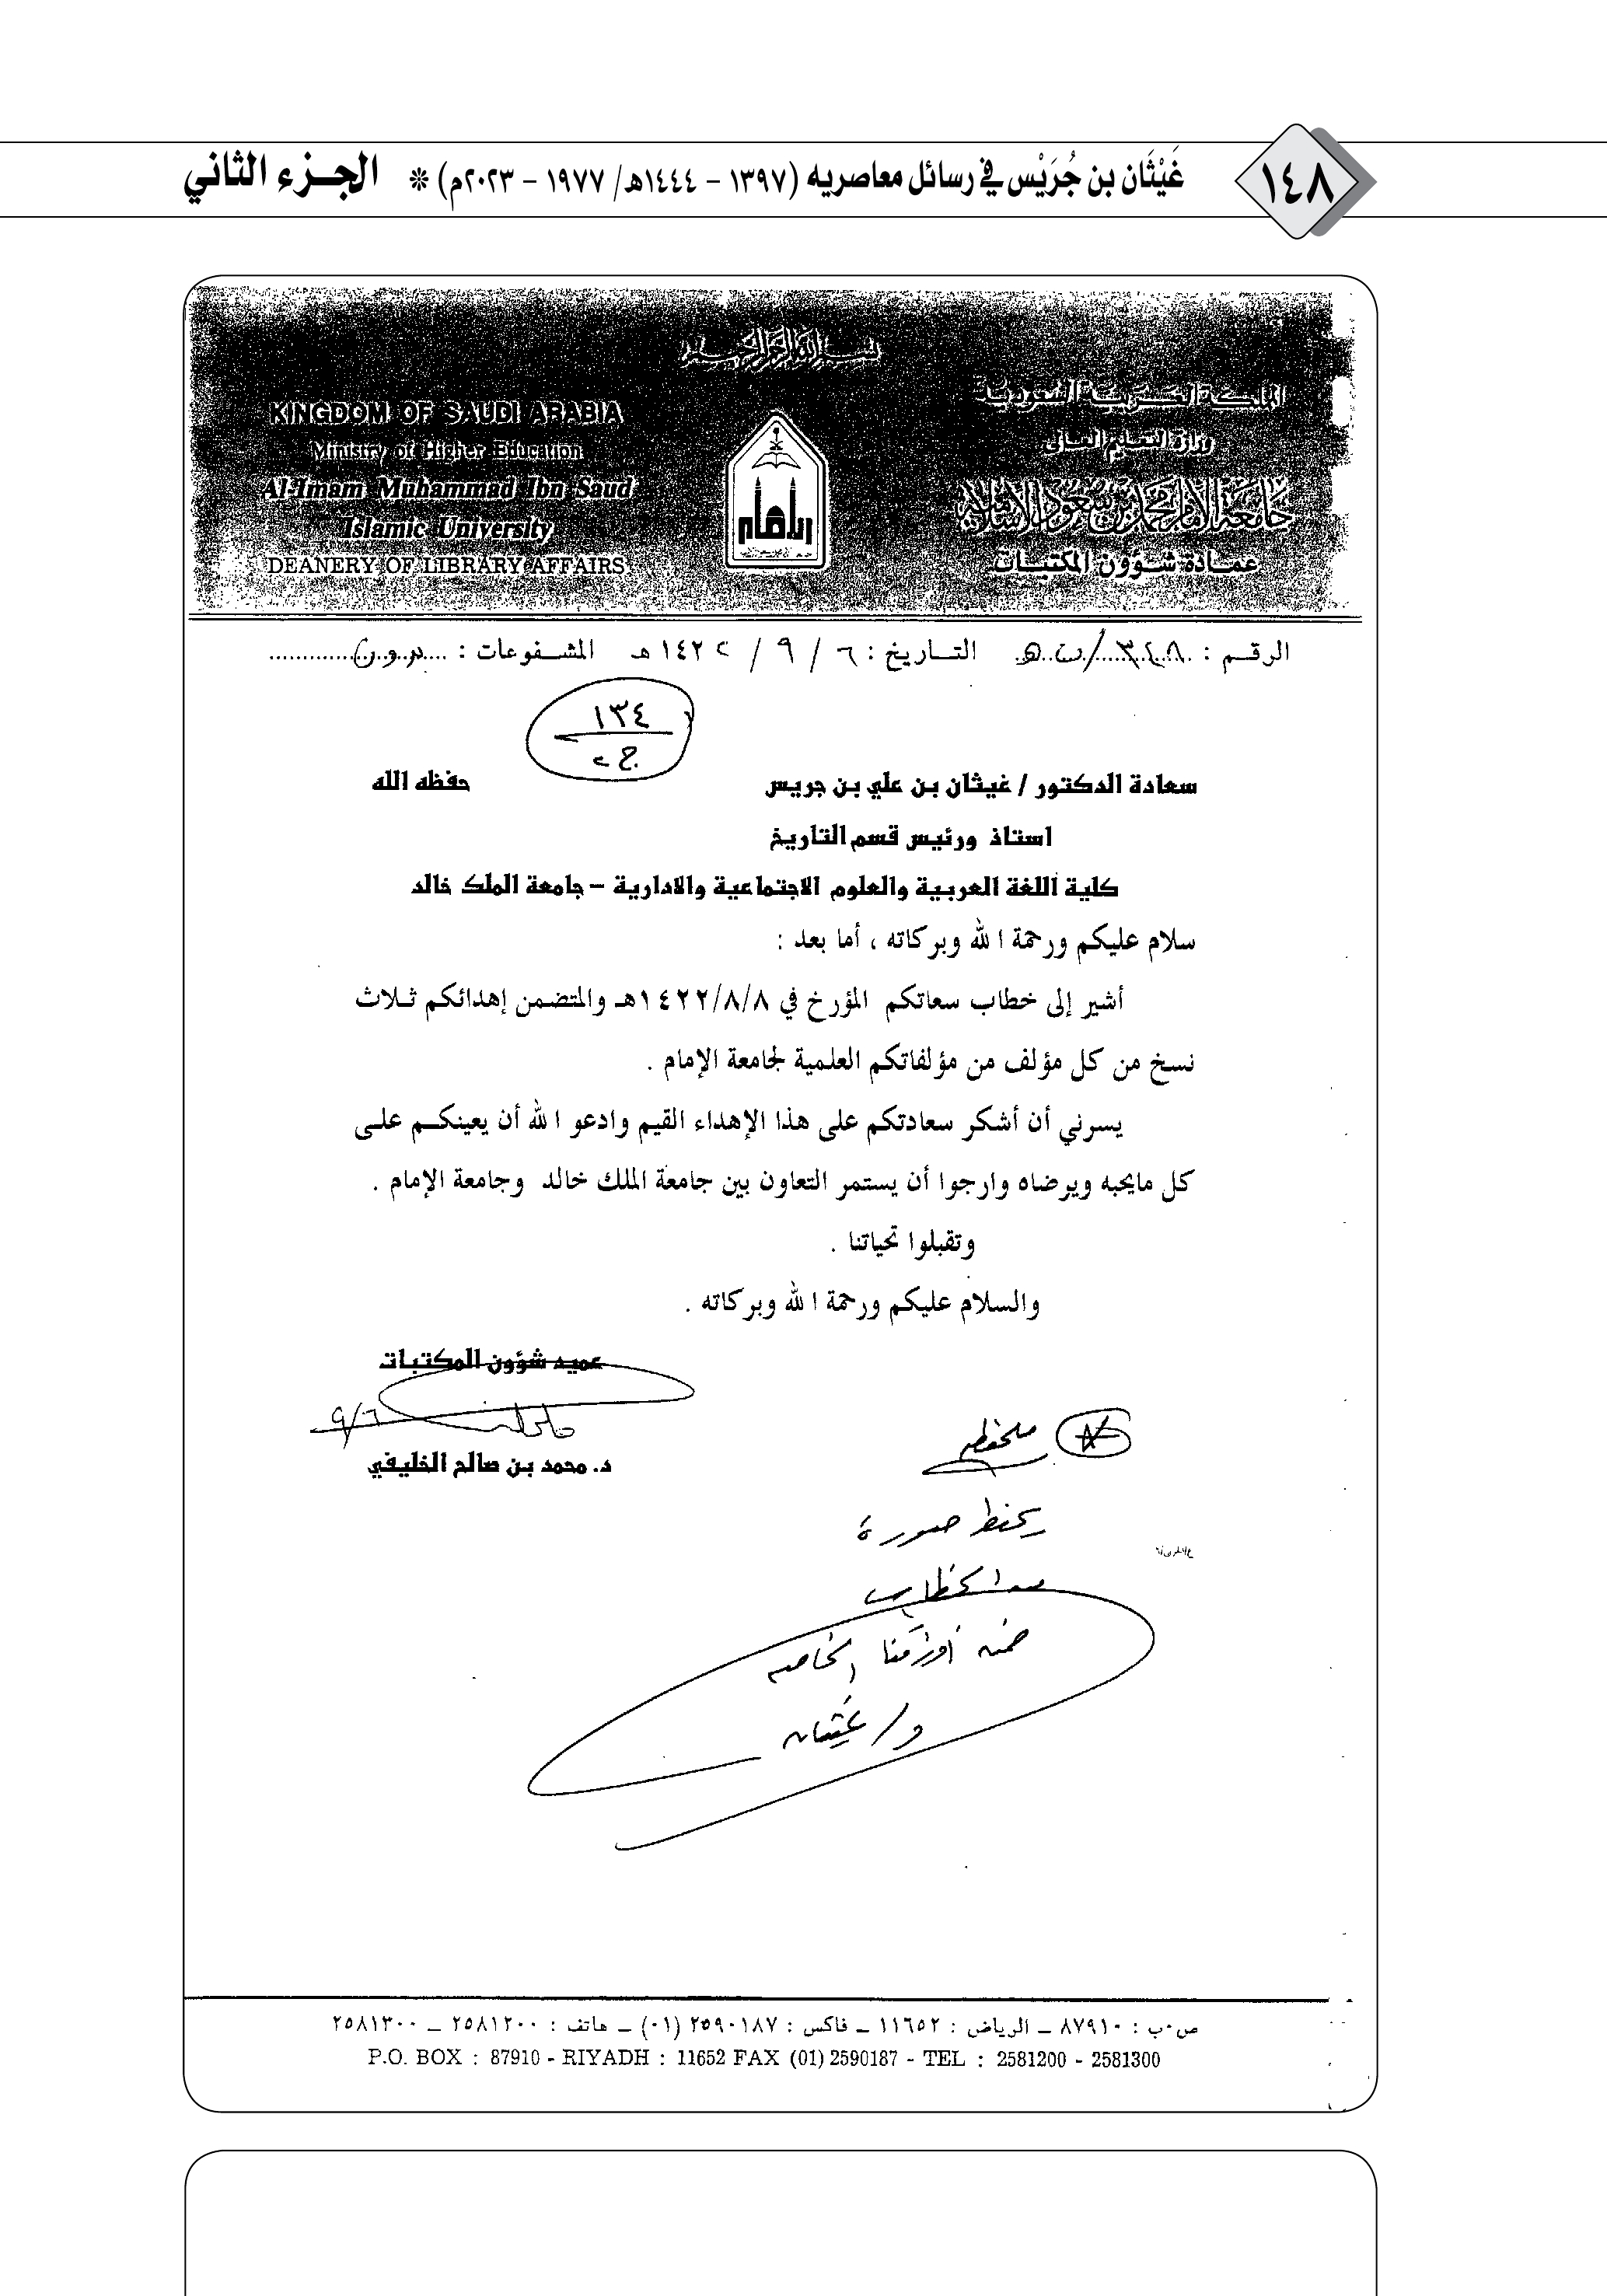 ١٤٨
غَيْثَان بن جُرَيْس في رسائل معاصريه (١٣٩٧ - ١٤٤٤هـ/ ١٩٧٧ - ٢٠٢٣م) * الجزء الثاني
بسم الله الرحمن الرحيم
المملكة العربية السعودية
وزارة التعليم العالي
جامعة الإمام محمد بن سعود الإسلامية
عمادة شؤون المكتبات
KINGDOM OF SAUDI ARABIA
Ministry of Higher Education
Al-Imam Muhammad Ibn Saud
Islamic University
DEANERY OF LIBRARY AFFAIRS
الرقم : ٣٤٨/ التاريخ : ٦ / ٩ / ١٤٢٢ هـ المشفوعات : بدون
١٣٤
ج ٢
سعادة الدكتور / غيثان بن علي بن جريس حفظه الله
استاذ ورئيس قسم التاريخ
كلية اللغة العربية والعلوم الاجتماعية والادارية – جامعة الملك خالد
سلام عليكم ورحمة الله وبركاته ، أما بعد :
أشير إلى خطاب سعاتكم المؤرخ في ١٤٢٢/٨/٨هـ والمتضمن إهدائكم ثلاث
نسخ من كل مؤلف من مؤلفاتكم العلمية لجامعة الإمام .
يسرني أن أشكر سعادتكم على هذا الإهداء القيم وادعو الله أن يعينكم على
كل مايحبه ويرضاه وارجوا أن يستمر التعاون بين جامعة الملك خالد وجامعة الإمام .
وتقبلوا تحياتنا .
والسلام عليكم ورحمة الله وبركاته .
عميد شؤون المكتبات
٩/٦
د. محمد بن صالح الخليفي
ملحوظه
يحفظ صورة
من الخطاب
ضمن أوراقنا الخاصه
د/ غيثان
ص٠ب : ٨٧٩١٠ ــ الرياض : ١١٦٥٢ ــ فاكس : ٢٥٩٠١٨٧ (٠١) ــ هاتف : ٢٥٨١٢٠٠ ــ ٢٥٨١٣٠٠
P.O. BOX : 87910 - RIYADH : 11652 FAX (01) 2590187 - TEL : 2581200 - 2581300